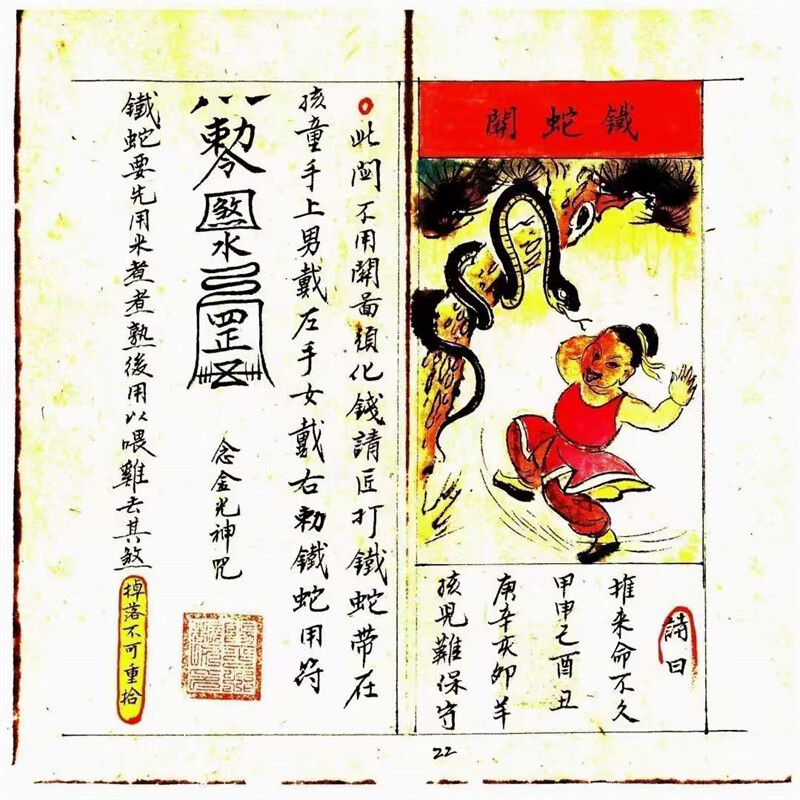 鐵蛇開
詩曰
推来命不久
甲申乙酉丑
庚辛亥卯羊
孩児難保守
22
此関不用開頭化錢請匠打鐵蛇带在
孩童手上男戴左手女戴右勅鐵蛇用符
勅令
煞
水
罡
念金光神咒
鐵蛇要先用米煮煮熟後用以喂雞去其煞
掉落不可重拾